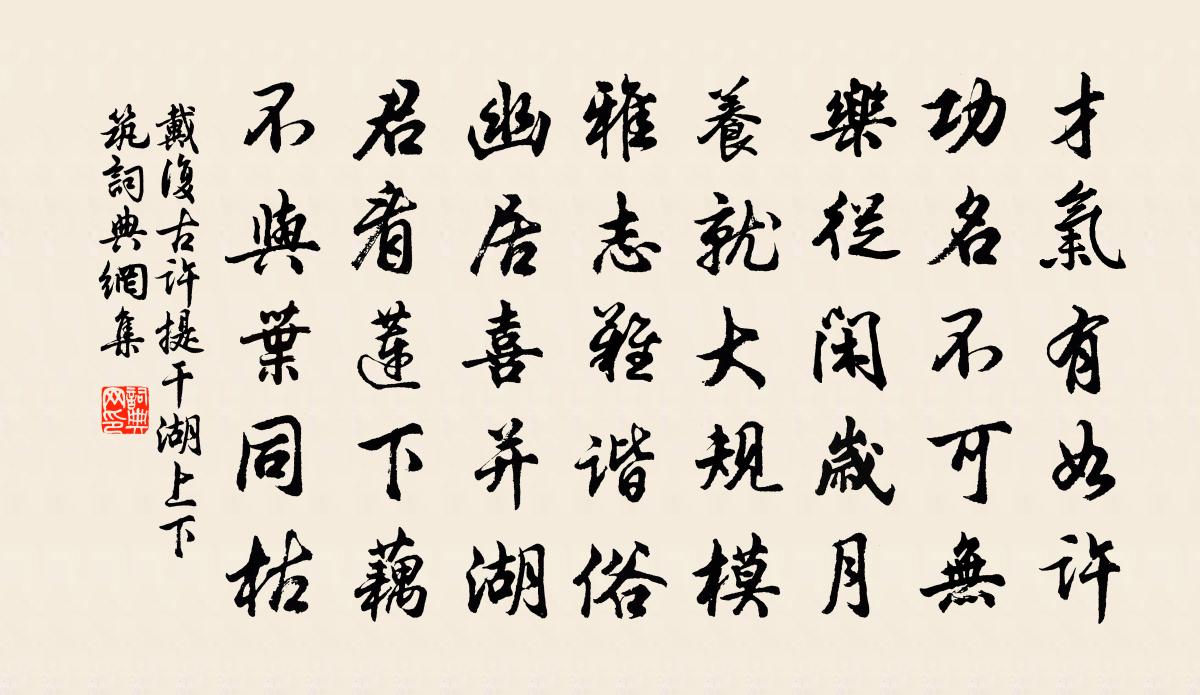 才氣有如許
功名不可無
樂從閑歲月
養就大規模
雅志難諧俗
幽居喜并湖
君看蓮下藕
不與葉同枯
戴復古許提干湖上下
筑詞典網集
詞典
网印